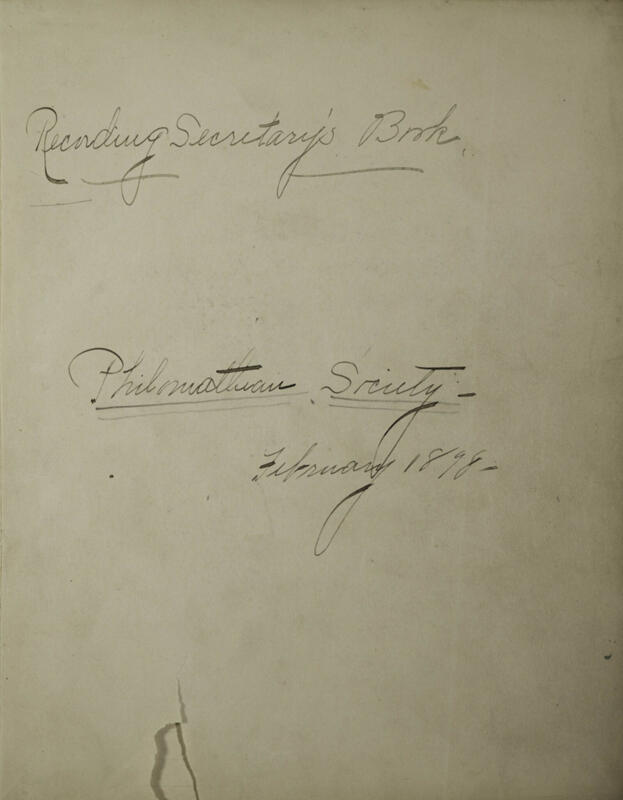 Recording Secretary's Book.
Philomathean Society -
February 1898 -